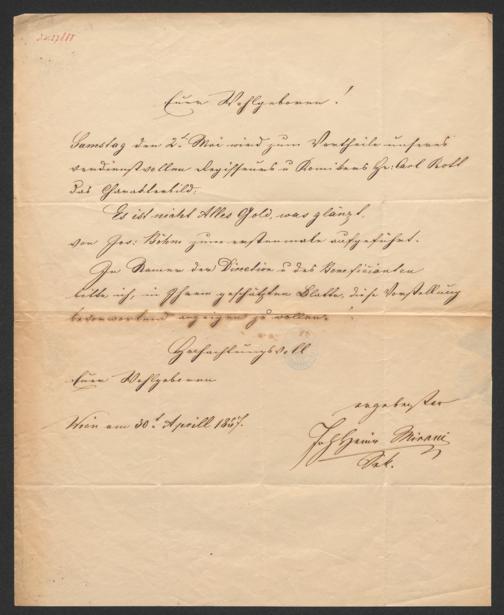 Euer Wohlgeboren!
Samstag den 2t. Mai wird zum Vortheile unseres
verdienstvollen Regisseurs u Komikers Hr: Carl Rott
das Charakterbild:
Es ist nicht Alles Gold, was glänzt,
von Jos: Böhm zum erstenmale aufgeführt.
Im Namen der Direction u des Beneficianten
bitte ich, in Ihrem geschützten Blatte, diese Vorstellung
bevorwortend anzeigen zu wollen.
Hochachtungsvoll
Euer Wohlgeboren
ergebenster
Wien am 30t. Aprill 1857.
Joh Heinr Mirani
Sek.